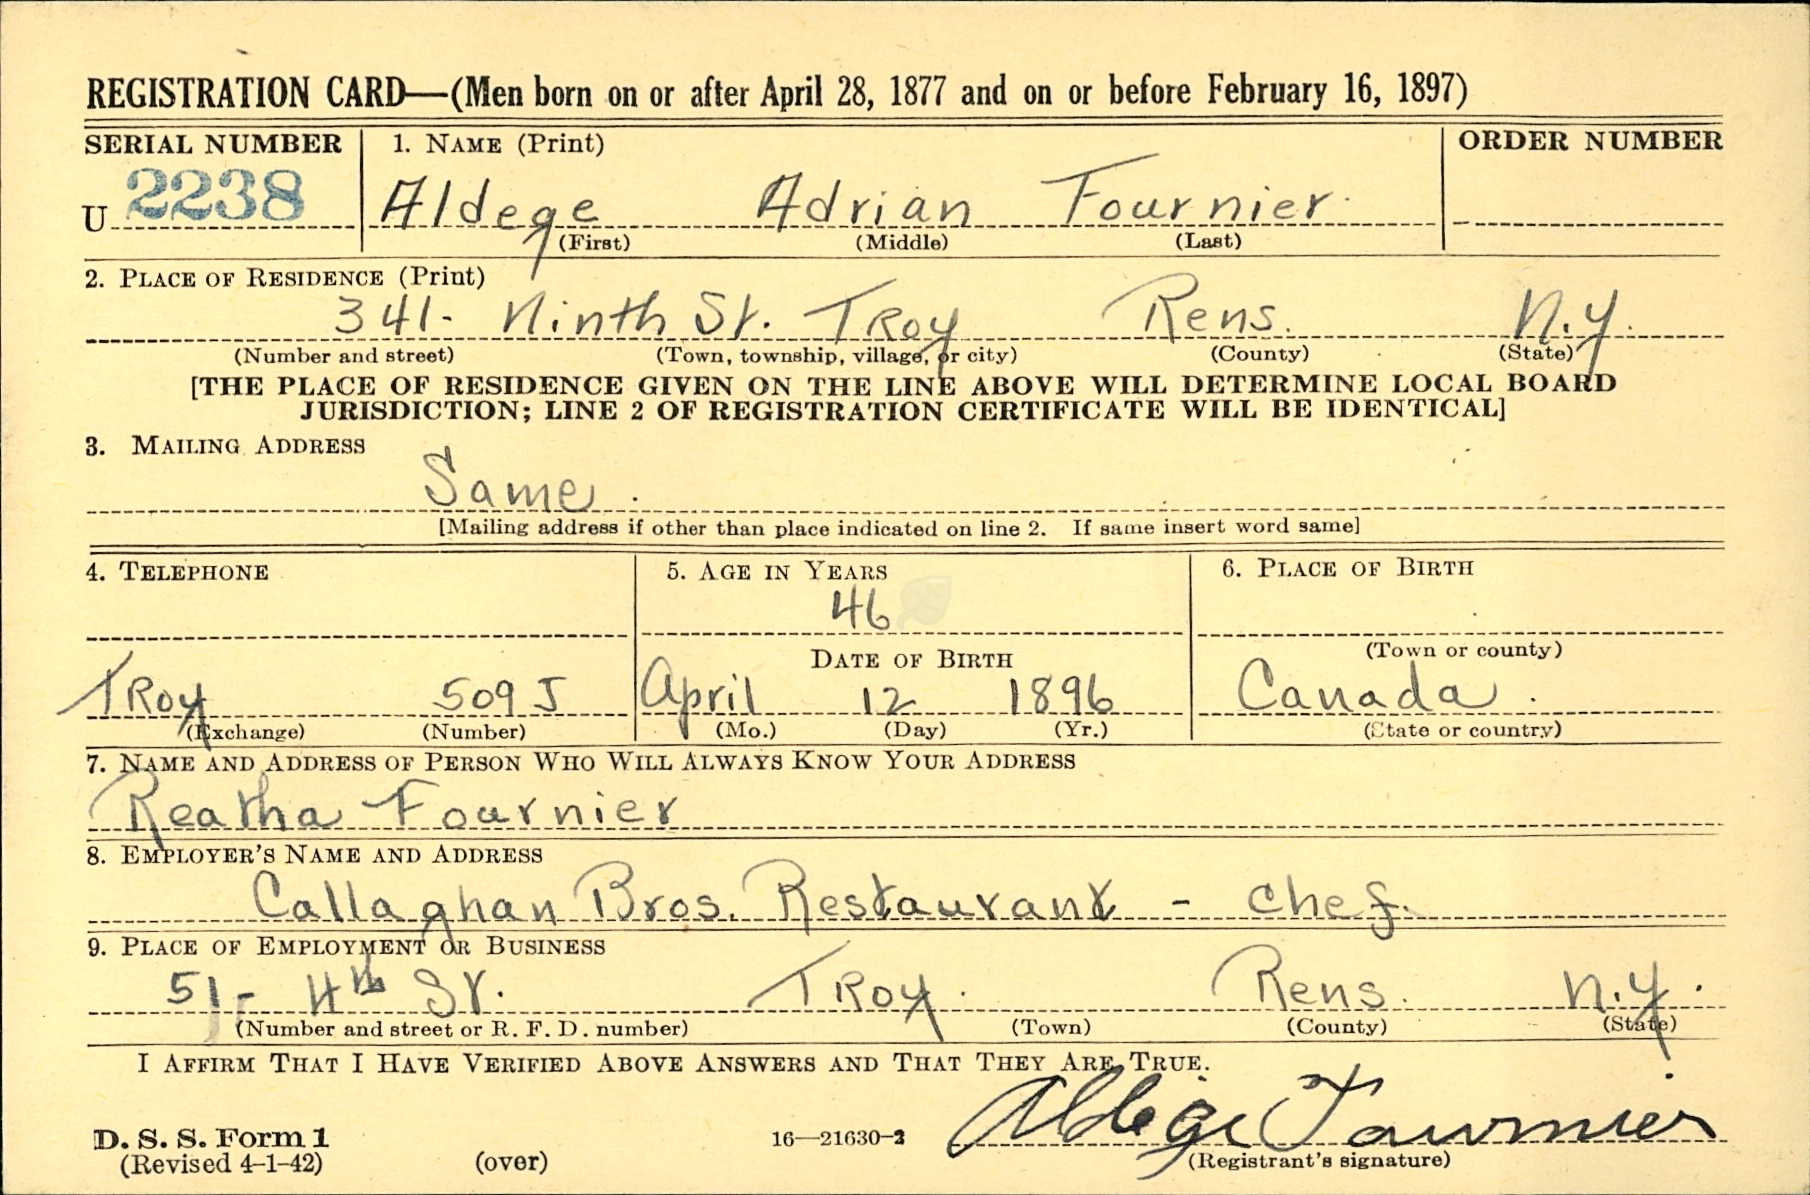 REGISTRATION CARD—(Men born on or after April 28, 1877 and on or before February 16, 1897)
SERIAL NUMBER
1. NAME (Print)
ORDER NUMBER
U 2238
Aldege Adrian Fournier
(First) (Middle) (Last)
2. PLACE OF RESIDENCE (Print)
341- Ninth St. Troy Rens. N.Y.
(Number and street) (Town, township, village, or city) (County) (State)
[THE PLACE OF RESIDENCE GIVEN ON THE LINE ABOVE WILL DETERMINE LOCAL BOARD
JURISDICTION; LINE 2 OF REGISTRATION CERTIFICATE WILL BE IDENTICAL]
3. MAILING ADDRESS
Same
[Mailing address if other than place indicated on line 2. If same insert word same]
4. TELEPHONE
5. AGE IN YEARS
6. PLACE OF BIRTH
46
DATE OF BIRTH
(Town or county)
Troy 509 J April 12 1896 Canada.
(Exchange) (Number) (Mo.) (Day) (Yr.) (State or country)
7. NAME AND ADDRESS OF PERSON WHO WILL ALWAYS KNOW YOUR ADDRESS
Reatha Fournier
8. EMPLOYER'S NAME AND ADDRESS
Callaghan Bros. Restaurant - chef.
9. PLACE OF EMPLOYMENT OR BUSINESS
51- 4th St. Troy. Rens. N.Y.
(Number and street or R. F. D. number) (Town) (County) (State)
I AFFIRM THAT I HAVE VERIFIED ABOVE ANSWERS AND THAT THEY ARE TRUE.
Aldege Fournier
D. S. S. Form 1
(Revised 4-1-42) (over) 16—21630-2 (Registrant's signature)